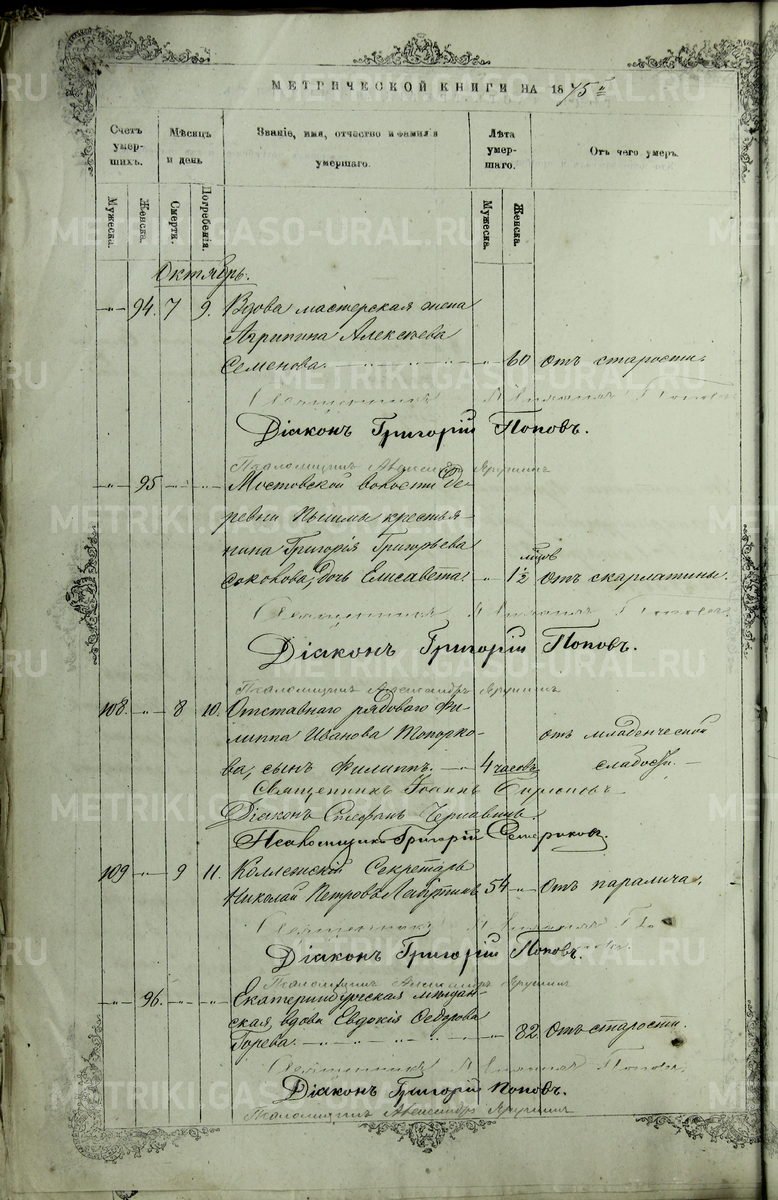 МЕТРИЧЕСКОЙ КНИГИ НА 1875 г
Счетъ умер- шихъ.
Мѣсяцъ и день
Званіе, имя, отчество и фамилія умершаго.
Лѣта умер- шаго.
Отъ чего умеръ.
Мужеска. Женска. Смерти. Погребенія. Мужеска. Женска.
Октябрь.
94. 7 9. Вдова мастерская жена
Агрипина Алексѣева
Семенова. 60 отъ старости.
Священникъ Поповъ
Діаконъ Григорій Поповъ.
Псаломщикъ Александръ Ярушинъ
95 Мостовской волости де-
ревни Пышмы крестья-
нина Григорія Григорьева
мѣсяц
Соковова, дочь Елисавета 1½ отъ скарлатины.
Священникъ Поповъ
Діаконъ Григорій Поповъ.
Псаломщикъ Александръ Ярушинъ
108. 8 10. Отставнаго рядоваго Фи-
липпа Иванова Топорко-
отъ младенческой
ва, сынъ Филиппъ. 4 часовъ слабости.
Священникъ Іоаннъ
Діаконъ Стефанъ Чернавинъ
Псаломщикъ Григорій
109 9 11. Коллежскій Секретарь
Николай Петровъ 54 Отъ паралича.
Священникъ
Діаконъ Григорій Поповъ.
Псаломщикъ Александръ Ярушинъ
96. Екатеринбургская мѣщан-
ская вдова Евдокія Ѳедорова
Горева. 82. Отъ старости.
Священникъ Поповъ
Діаконъ Григорій Поповъ.
Псаломщикъ Александръ Ярушинъ
METRIKI.GASO-URAL.RU